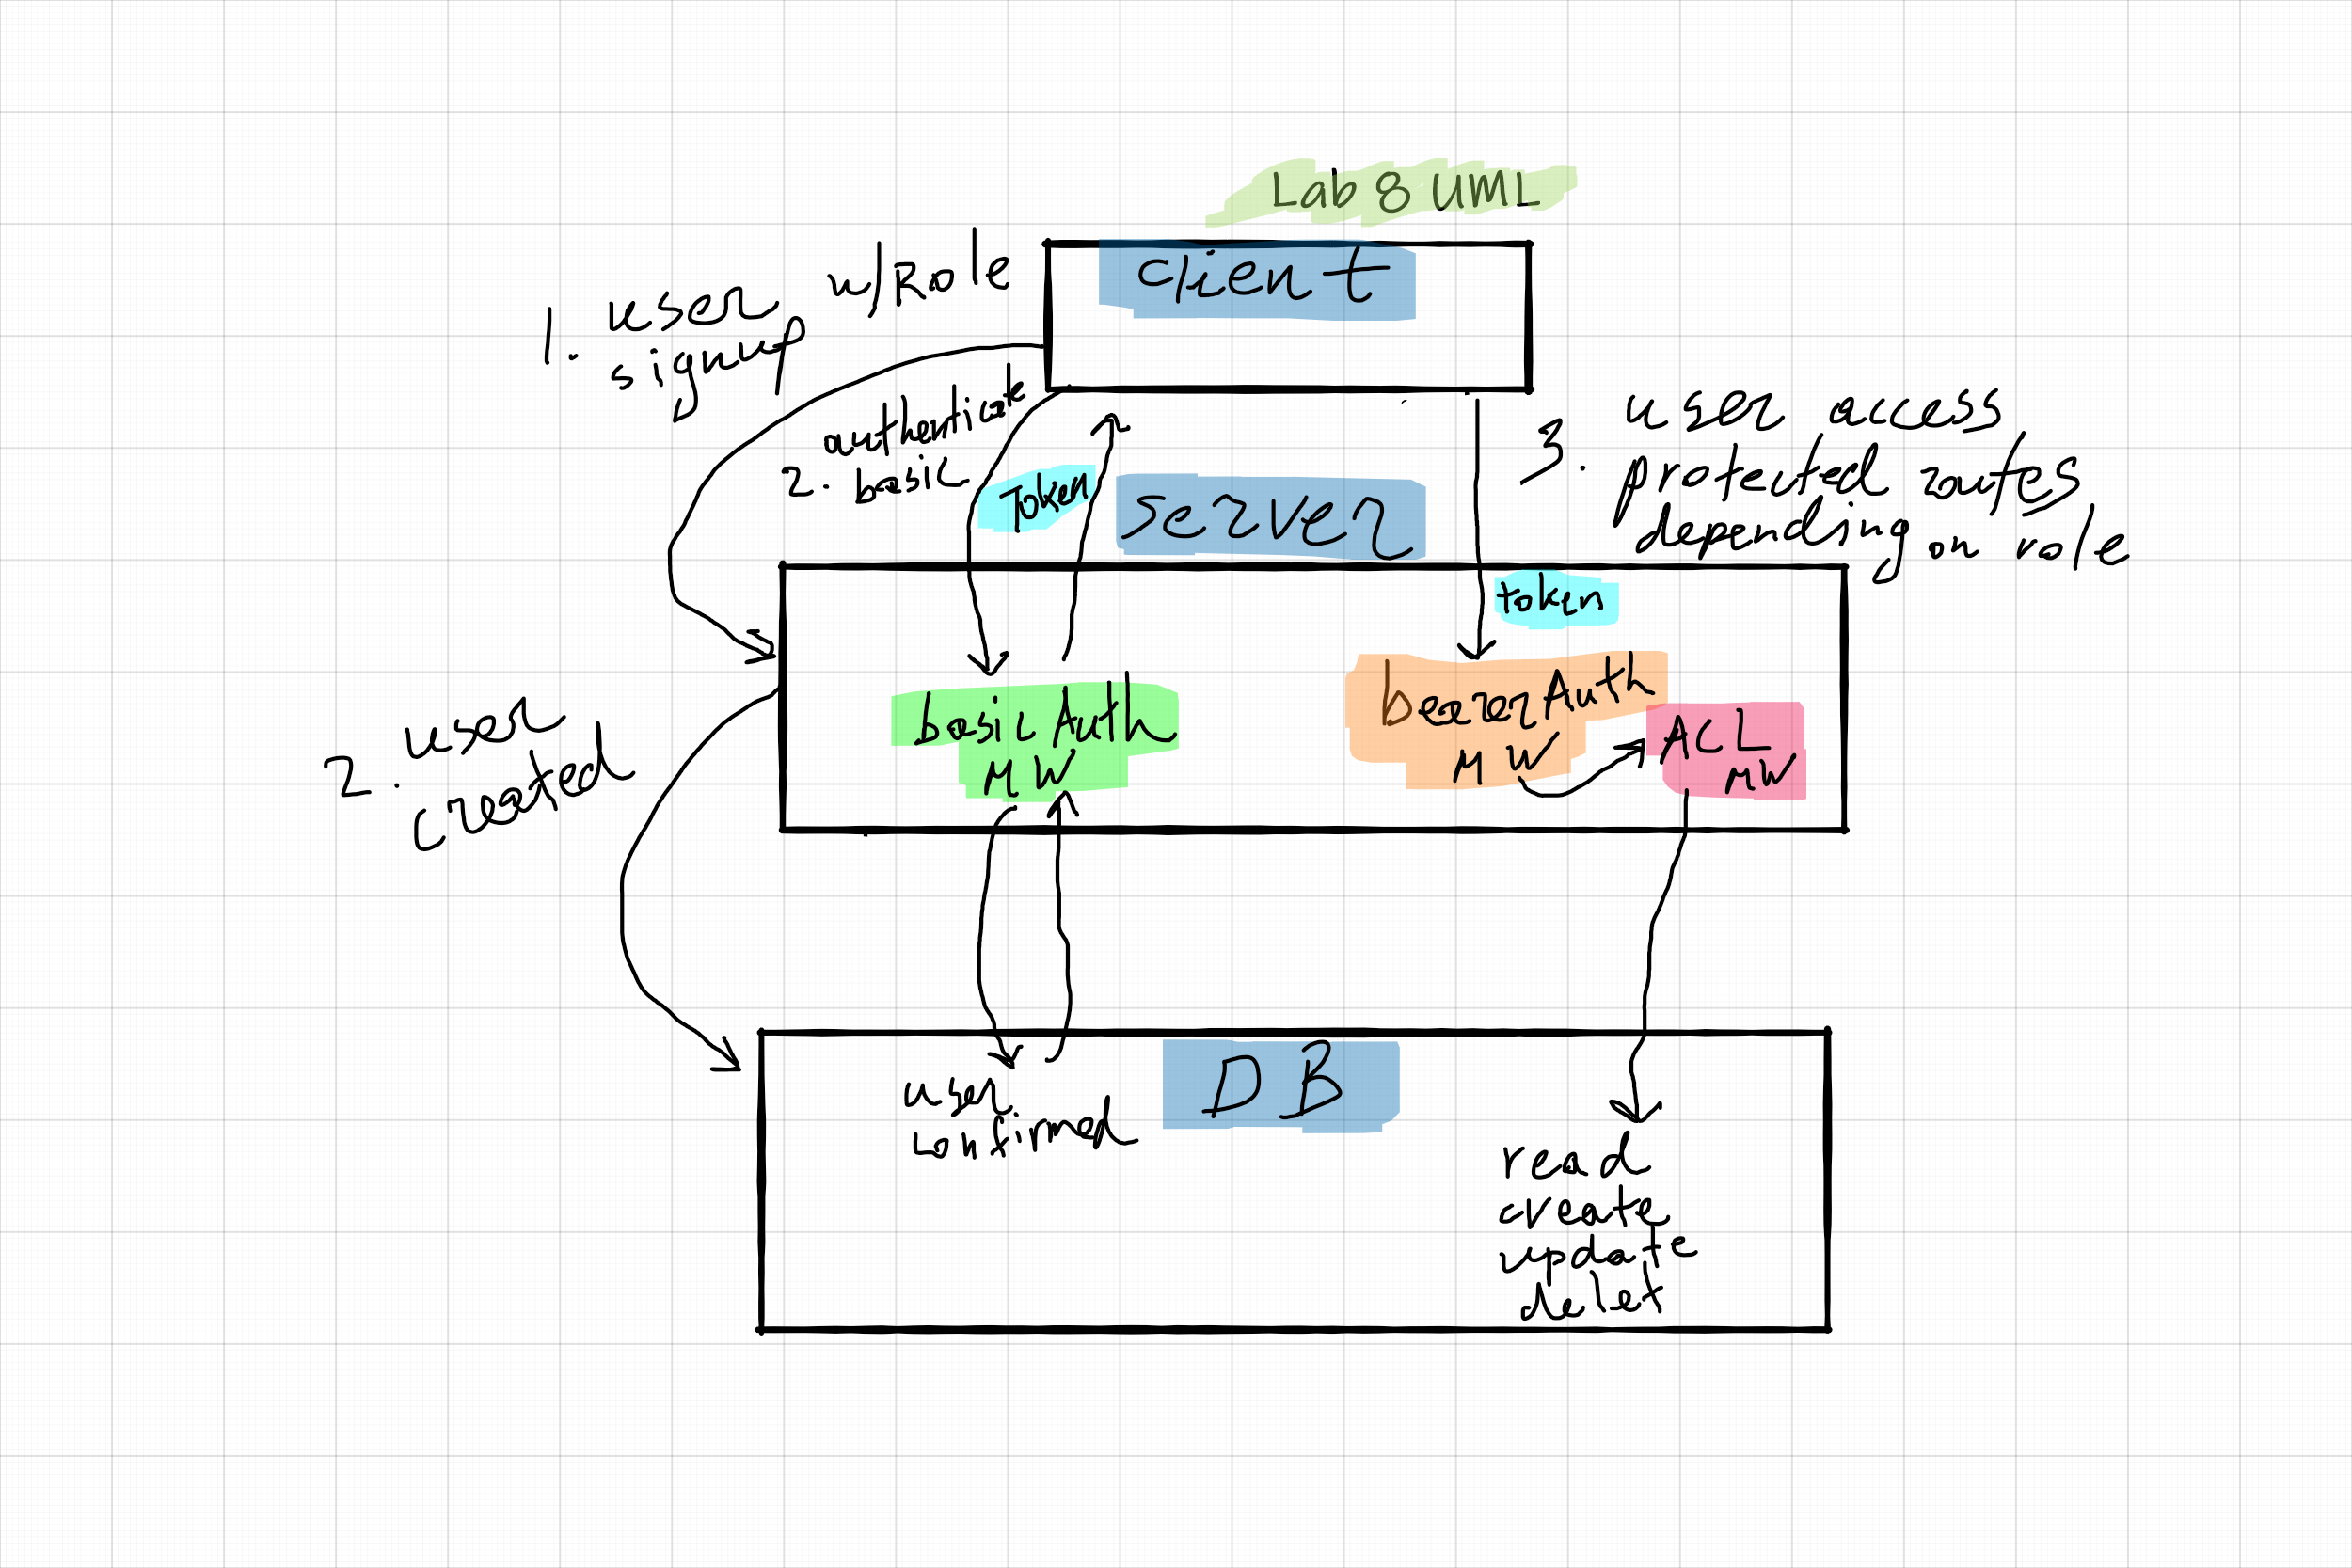 Lab 8 UML
client
1. user w/Role
signup
authenticate
2. basic
Token
server
3. user access
protected routes
depending on role
token
basic Auth
MW
bearerAuth
MW
ACL
MW
2. user
created
DB
user
confirmed
read
create
update
delet